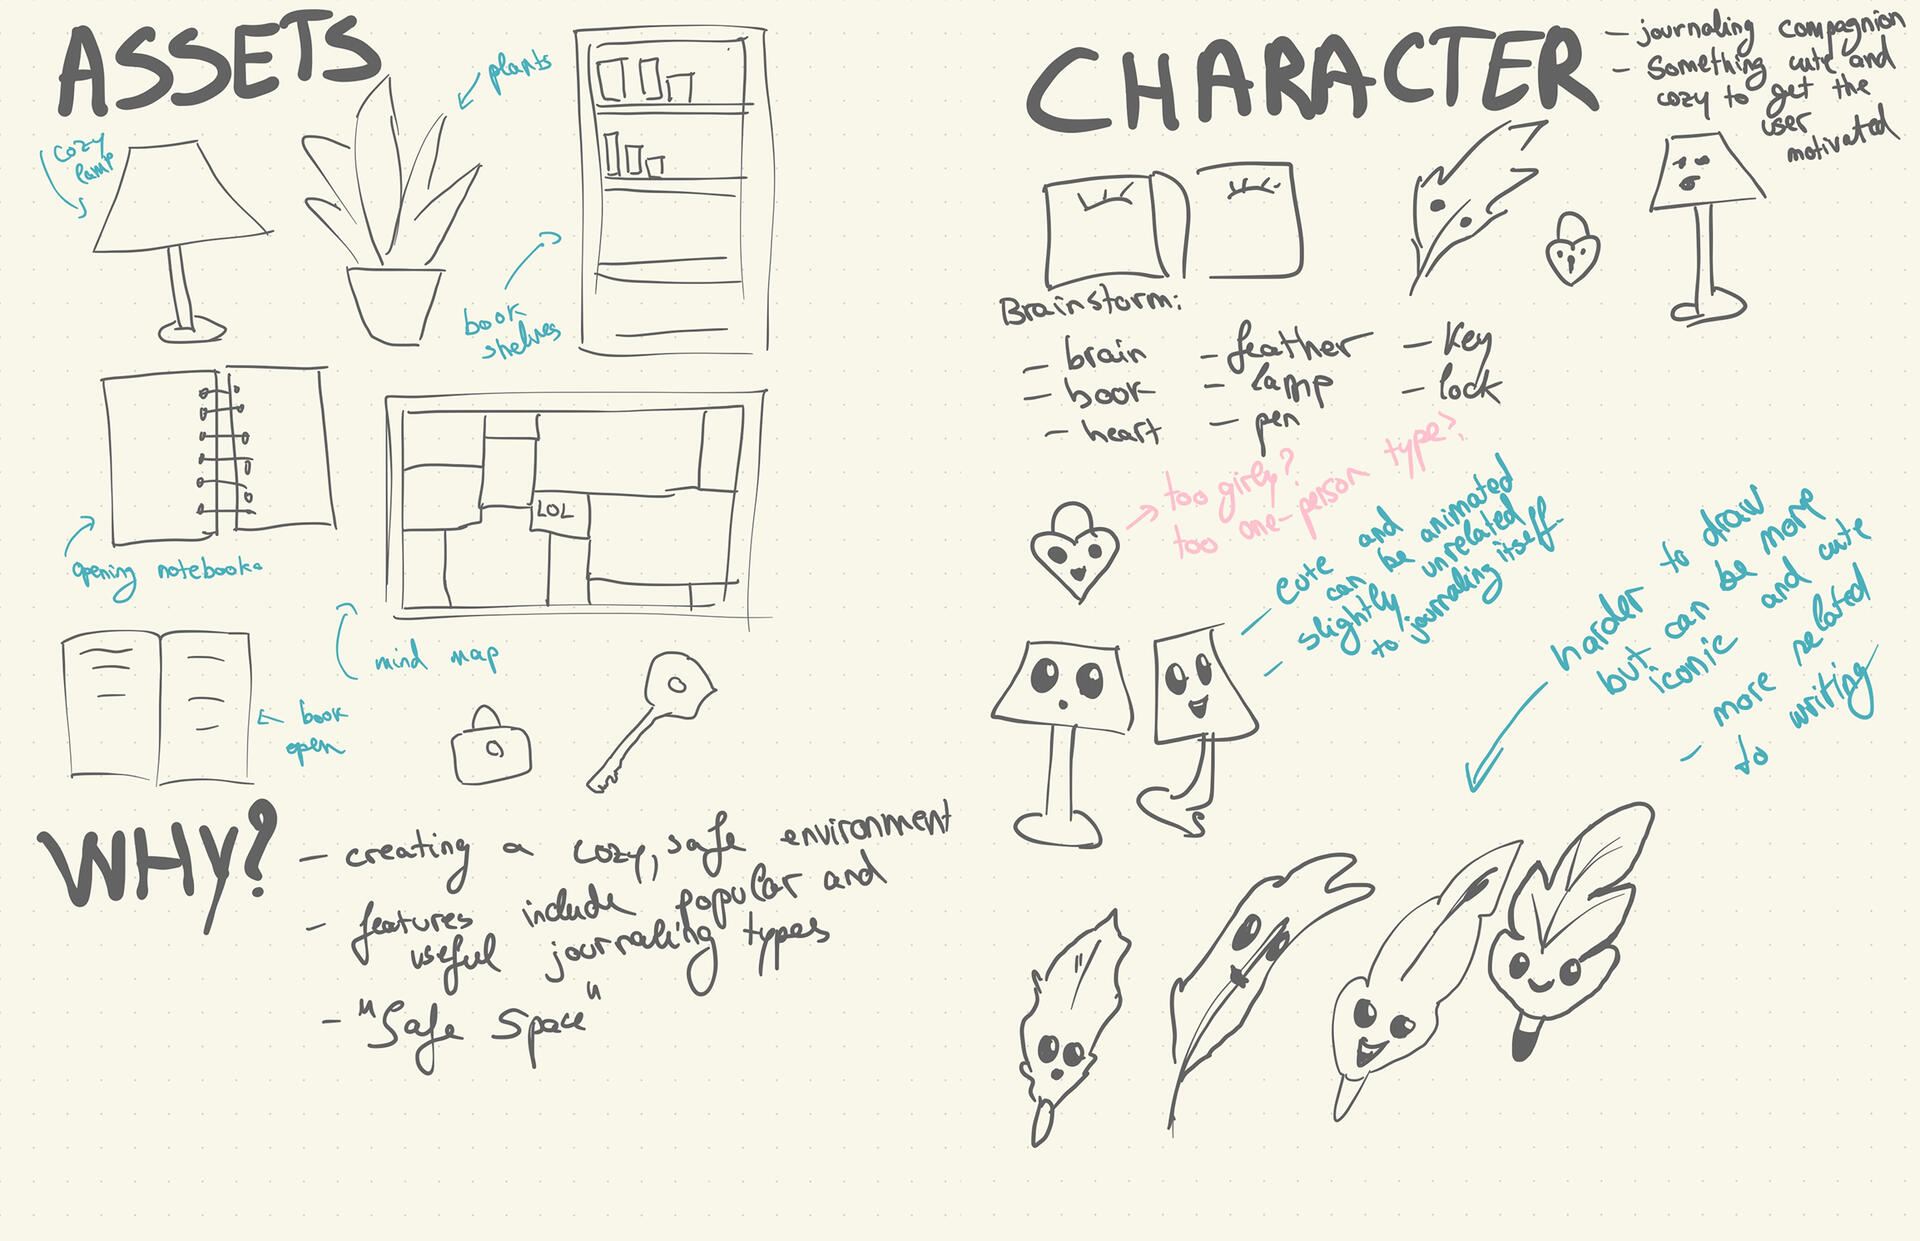 ASSETS
plants
cozy
lamp
book
shelves
LOL
opening notebook
mind map
book
open
WHY?
– creating a cozy, safe environment
– features include popular and
useful journaling types
– "Safe Space"
CHARACTER
– journaling compagnion
– Something cute and
cozy to get the
user
motivated
Brainstorm:
– brain
– book
– heart
– feather
– lamp
– pen
– Key
– lock
too girly?
too one-person types,
– cute and animated
– can be
slightly unrelated
to journaling itself
harder to draw
but can be more
iconic and cute
– more related
to writing